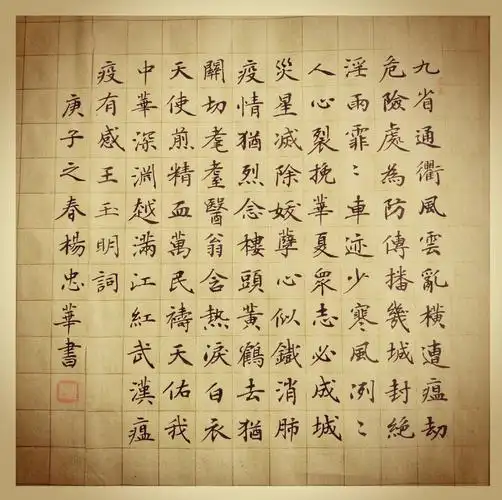 九省通衢風雲亂橫遭瘟劫
危險處為防傳播幾城封絕
淫雨霏〻車迹少寒風冽〻
人心裂挽華夏眾志必成城
災星滅除妖孽心似鐵消肺
疫情猶烈念樓頭黃鶴去猶
關切耄耋醫翁含熱淚白衣
天使煎精血萬民禱天佑我
中華深淵越滿江紅武漢瘟
疫有感王玉明詞
庚子之春楊忠華書